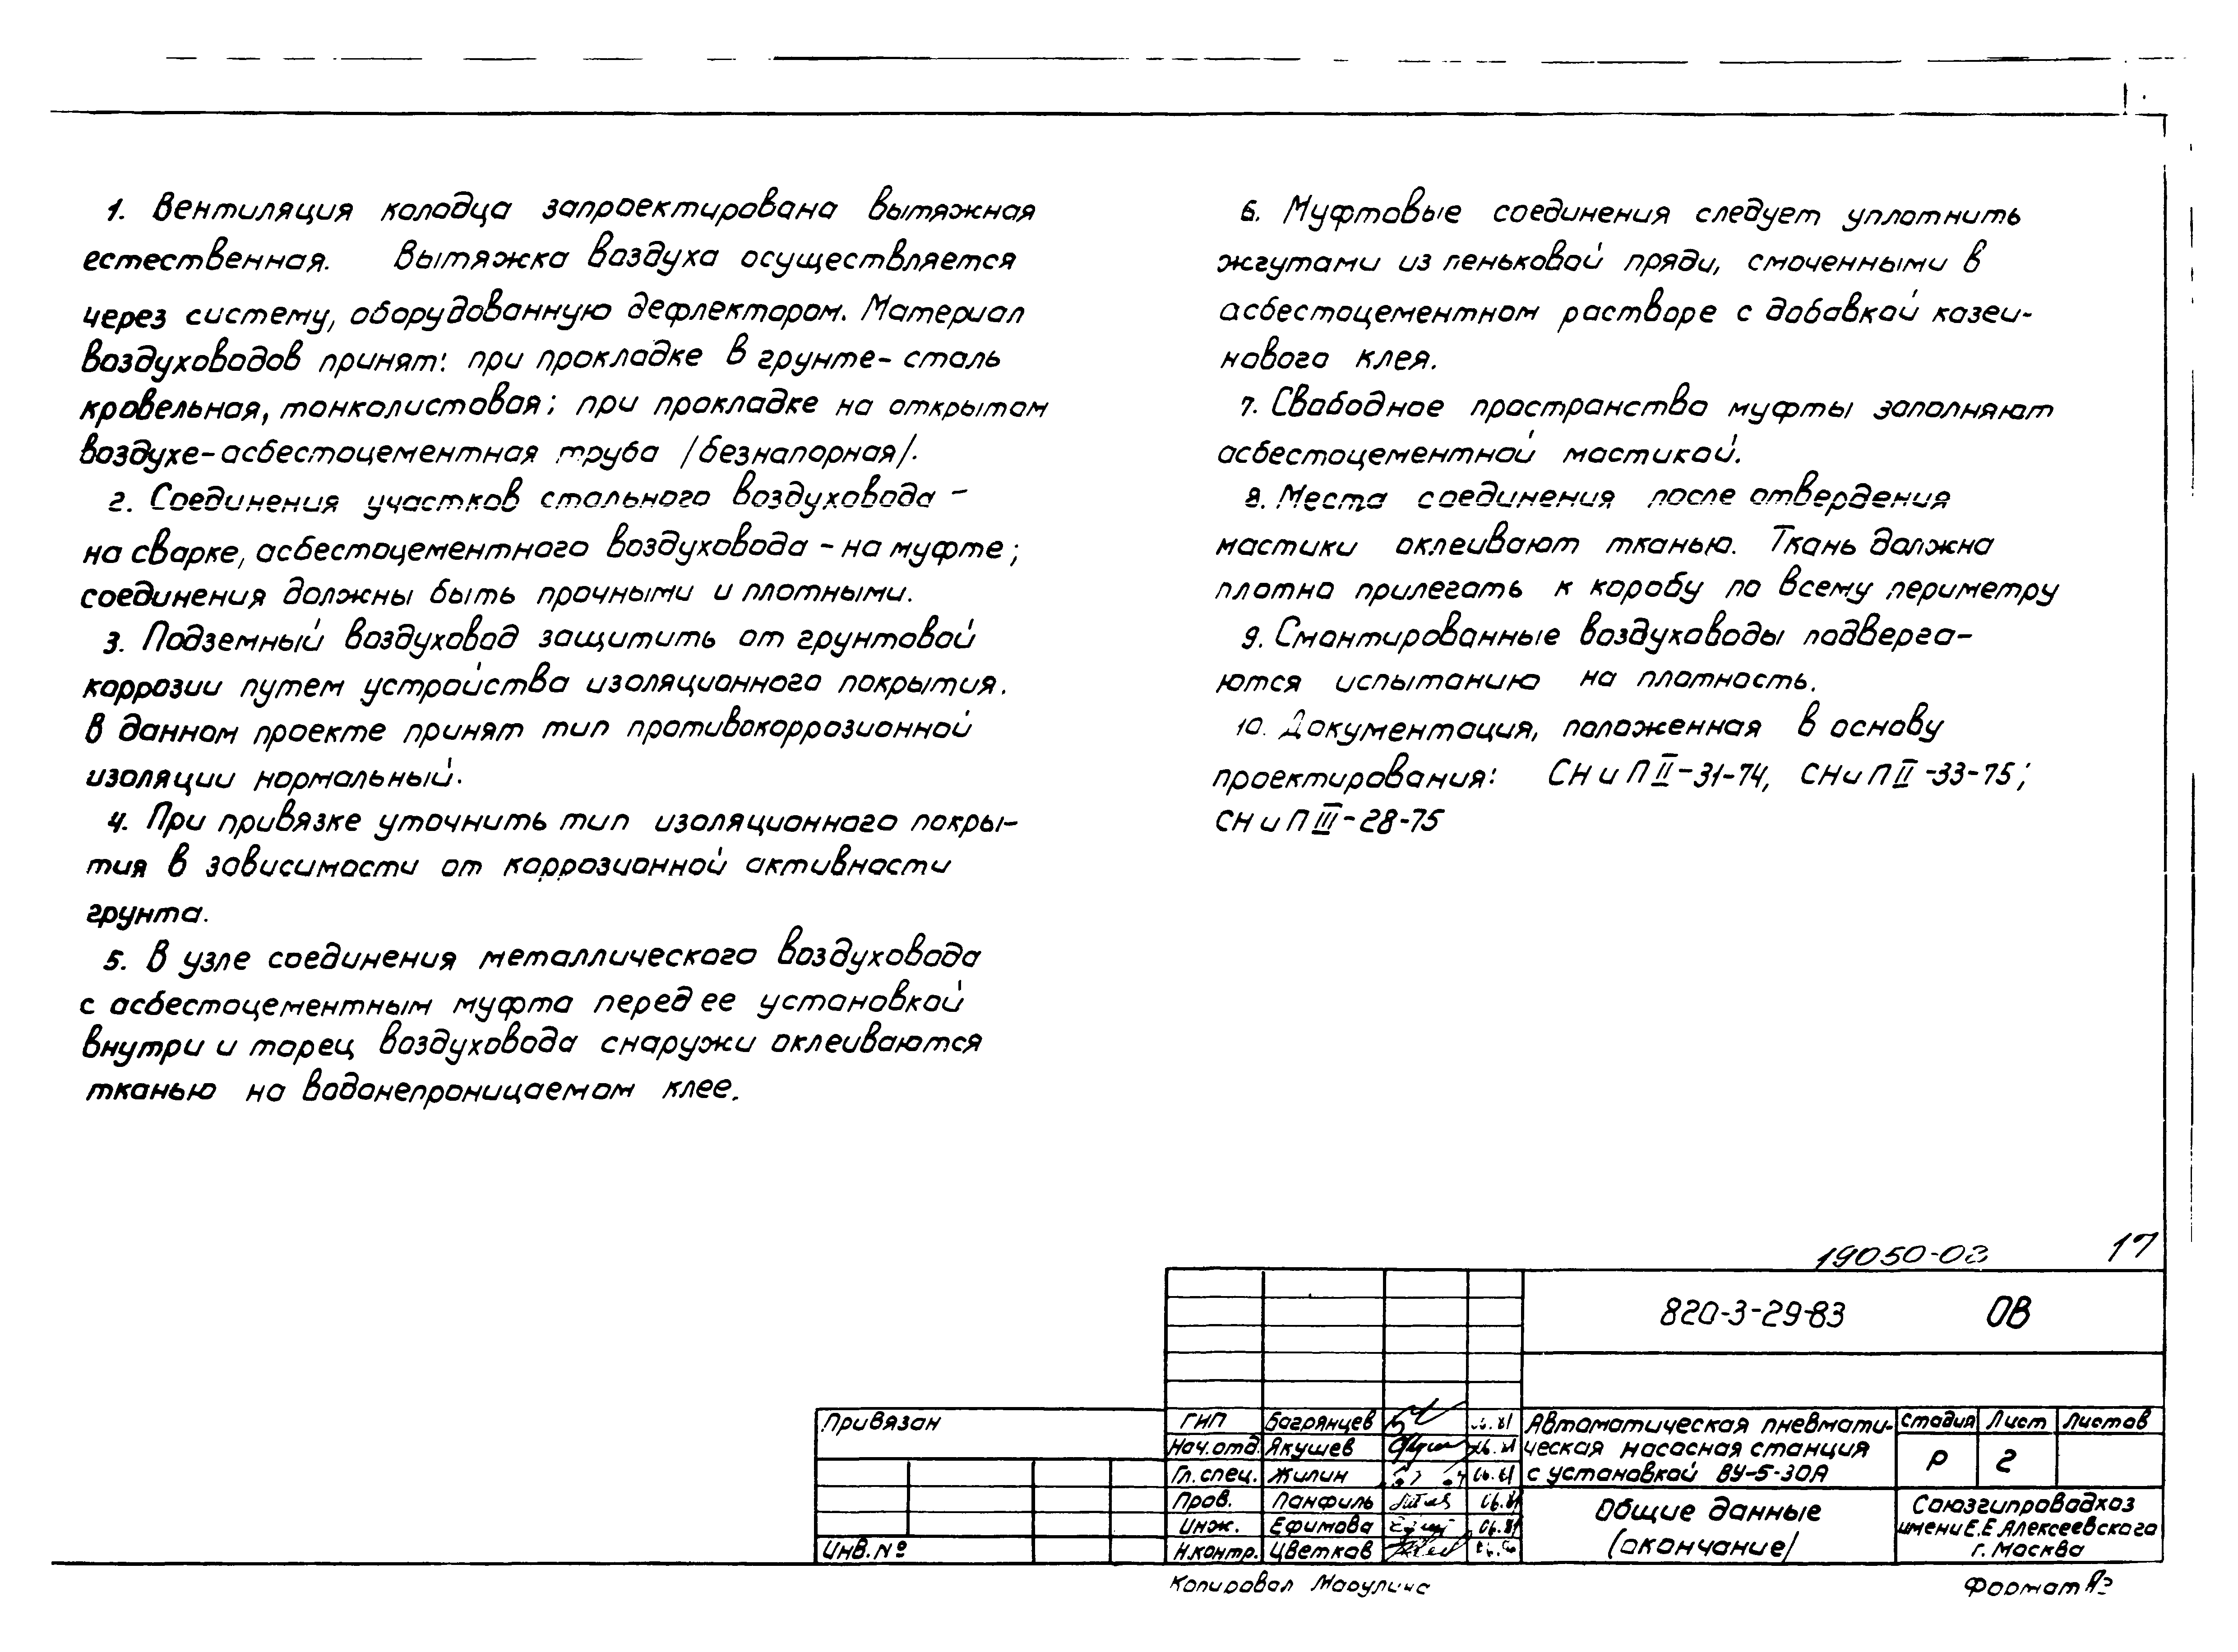 1. Вентиляция колодца запроектирована вытяжная
естественная. Вытяжка воздуха осуществляется
через систему, оборудованную дефлектором. Материал
воздуховодов принят: при прокладке в грунте- сталь
кровельная, тонколистовая; при прокладке на открытом
воздухе-асбестоцементная труба /безнапорная/.
2. Соединения участков стального воздуховода -
на сварке, асбестоцементного воздуховода - на муфте;
соединения должны быть прочными и плотными.
3. Подземный воздуховод защитить от грунтовой
коррозии путем устройства изоляционного покрытия.
В данном проекте принят тип противокоррозионной
изоляции нормальный.
4. При привязке уточнить тип изоляционного покры-
тия в зависимости от коррозионной активности
грунта.
5. В узле соединения металлического воздуховода
с асбестоцементным муфта перед ее установкой
внутри и торец воздуховода снаружи оклеиваются
тканью на водонепроницаемом клее.
6. Муфтовые соединения следует уплотнить
жгутами из пеньковой пряди, смоченными в
асбестоцементном растворе с добавкой казеи-
нового клея.
7. Свободное пространство муфты заполняют
асбестоцементной мастикой.
8. Места соединения после отвердения
мастики оклеивают тканью. Ткань должна
плотно прилегать к коробу по всему периметру
9. Смонтированные воздуховоды подверга-
ются испытанию на плотность.
10. Документация, положенная в основу
проектирования: СНиП II-31-74, СНиП II-33-75;
СНиП III-28-75
19050-02 17
820-3-29-83 ОВ
Привязан
Инв. №
ГИП Багрянцев
Нач. отд. Якушев
Гл. спец. Жилин 06.81
Пров. Панфиль 06.81
Инж. Ефимова 06.81
Н.контр. Цветков
Автоматическая пневмати-
ческая насосная станция
с установкой ВУ-5-30А
Стадия Лист Листов
Р 2
Общие данные
/окончание/
Союзгипроводхоз
имени Е.Е Алексеевского
г. Москва
Копировал Марулина
Формат А3